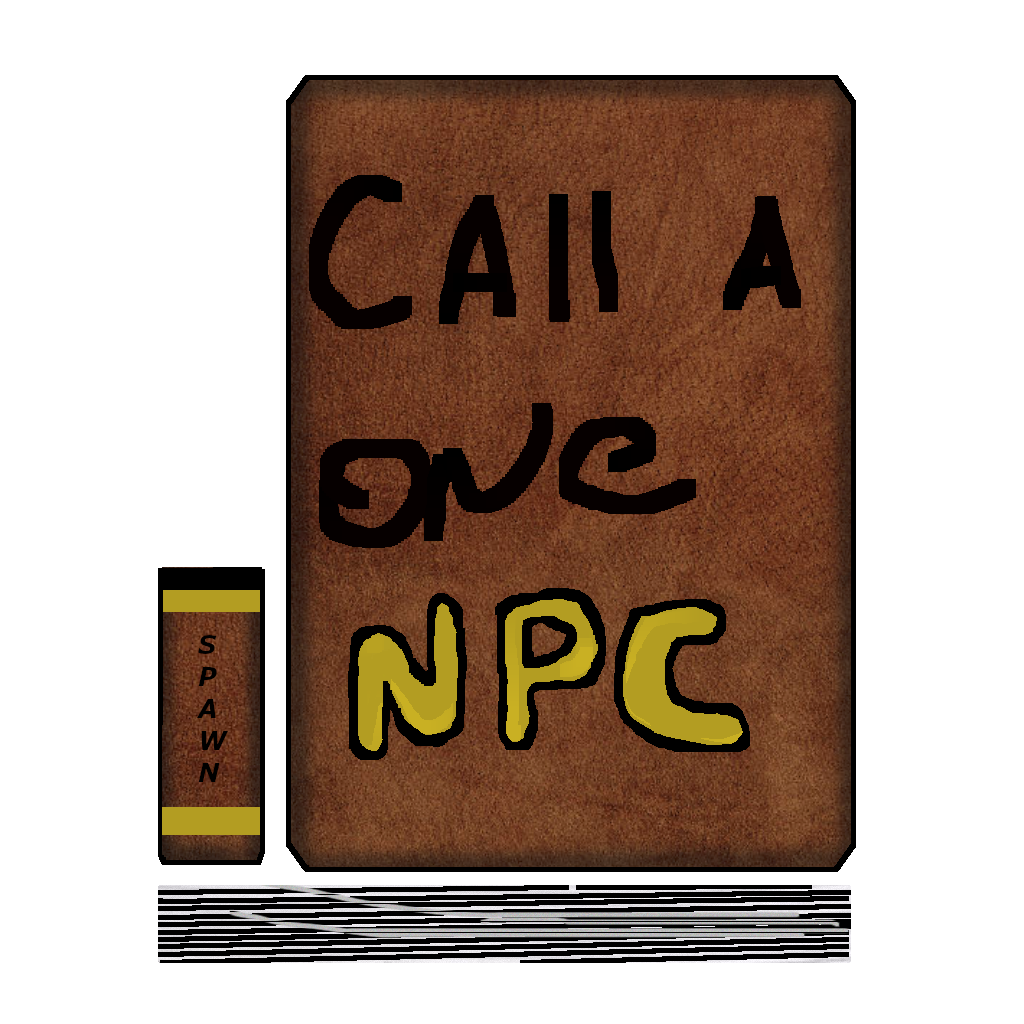 CAll A
one
NPC
SPAWN